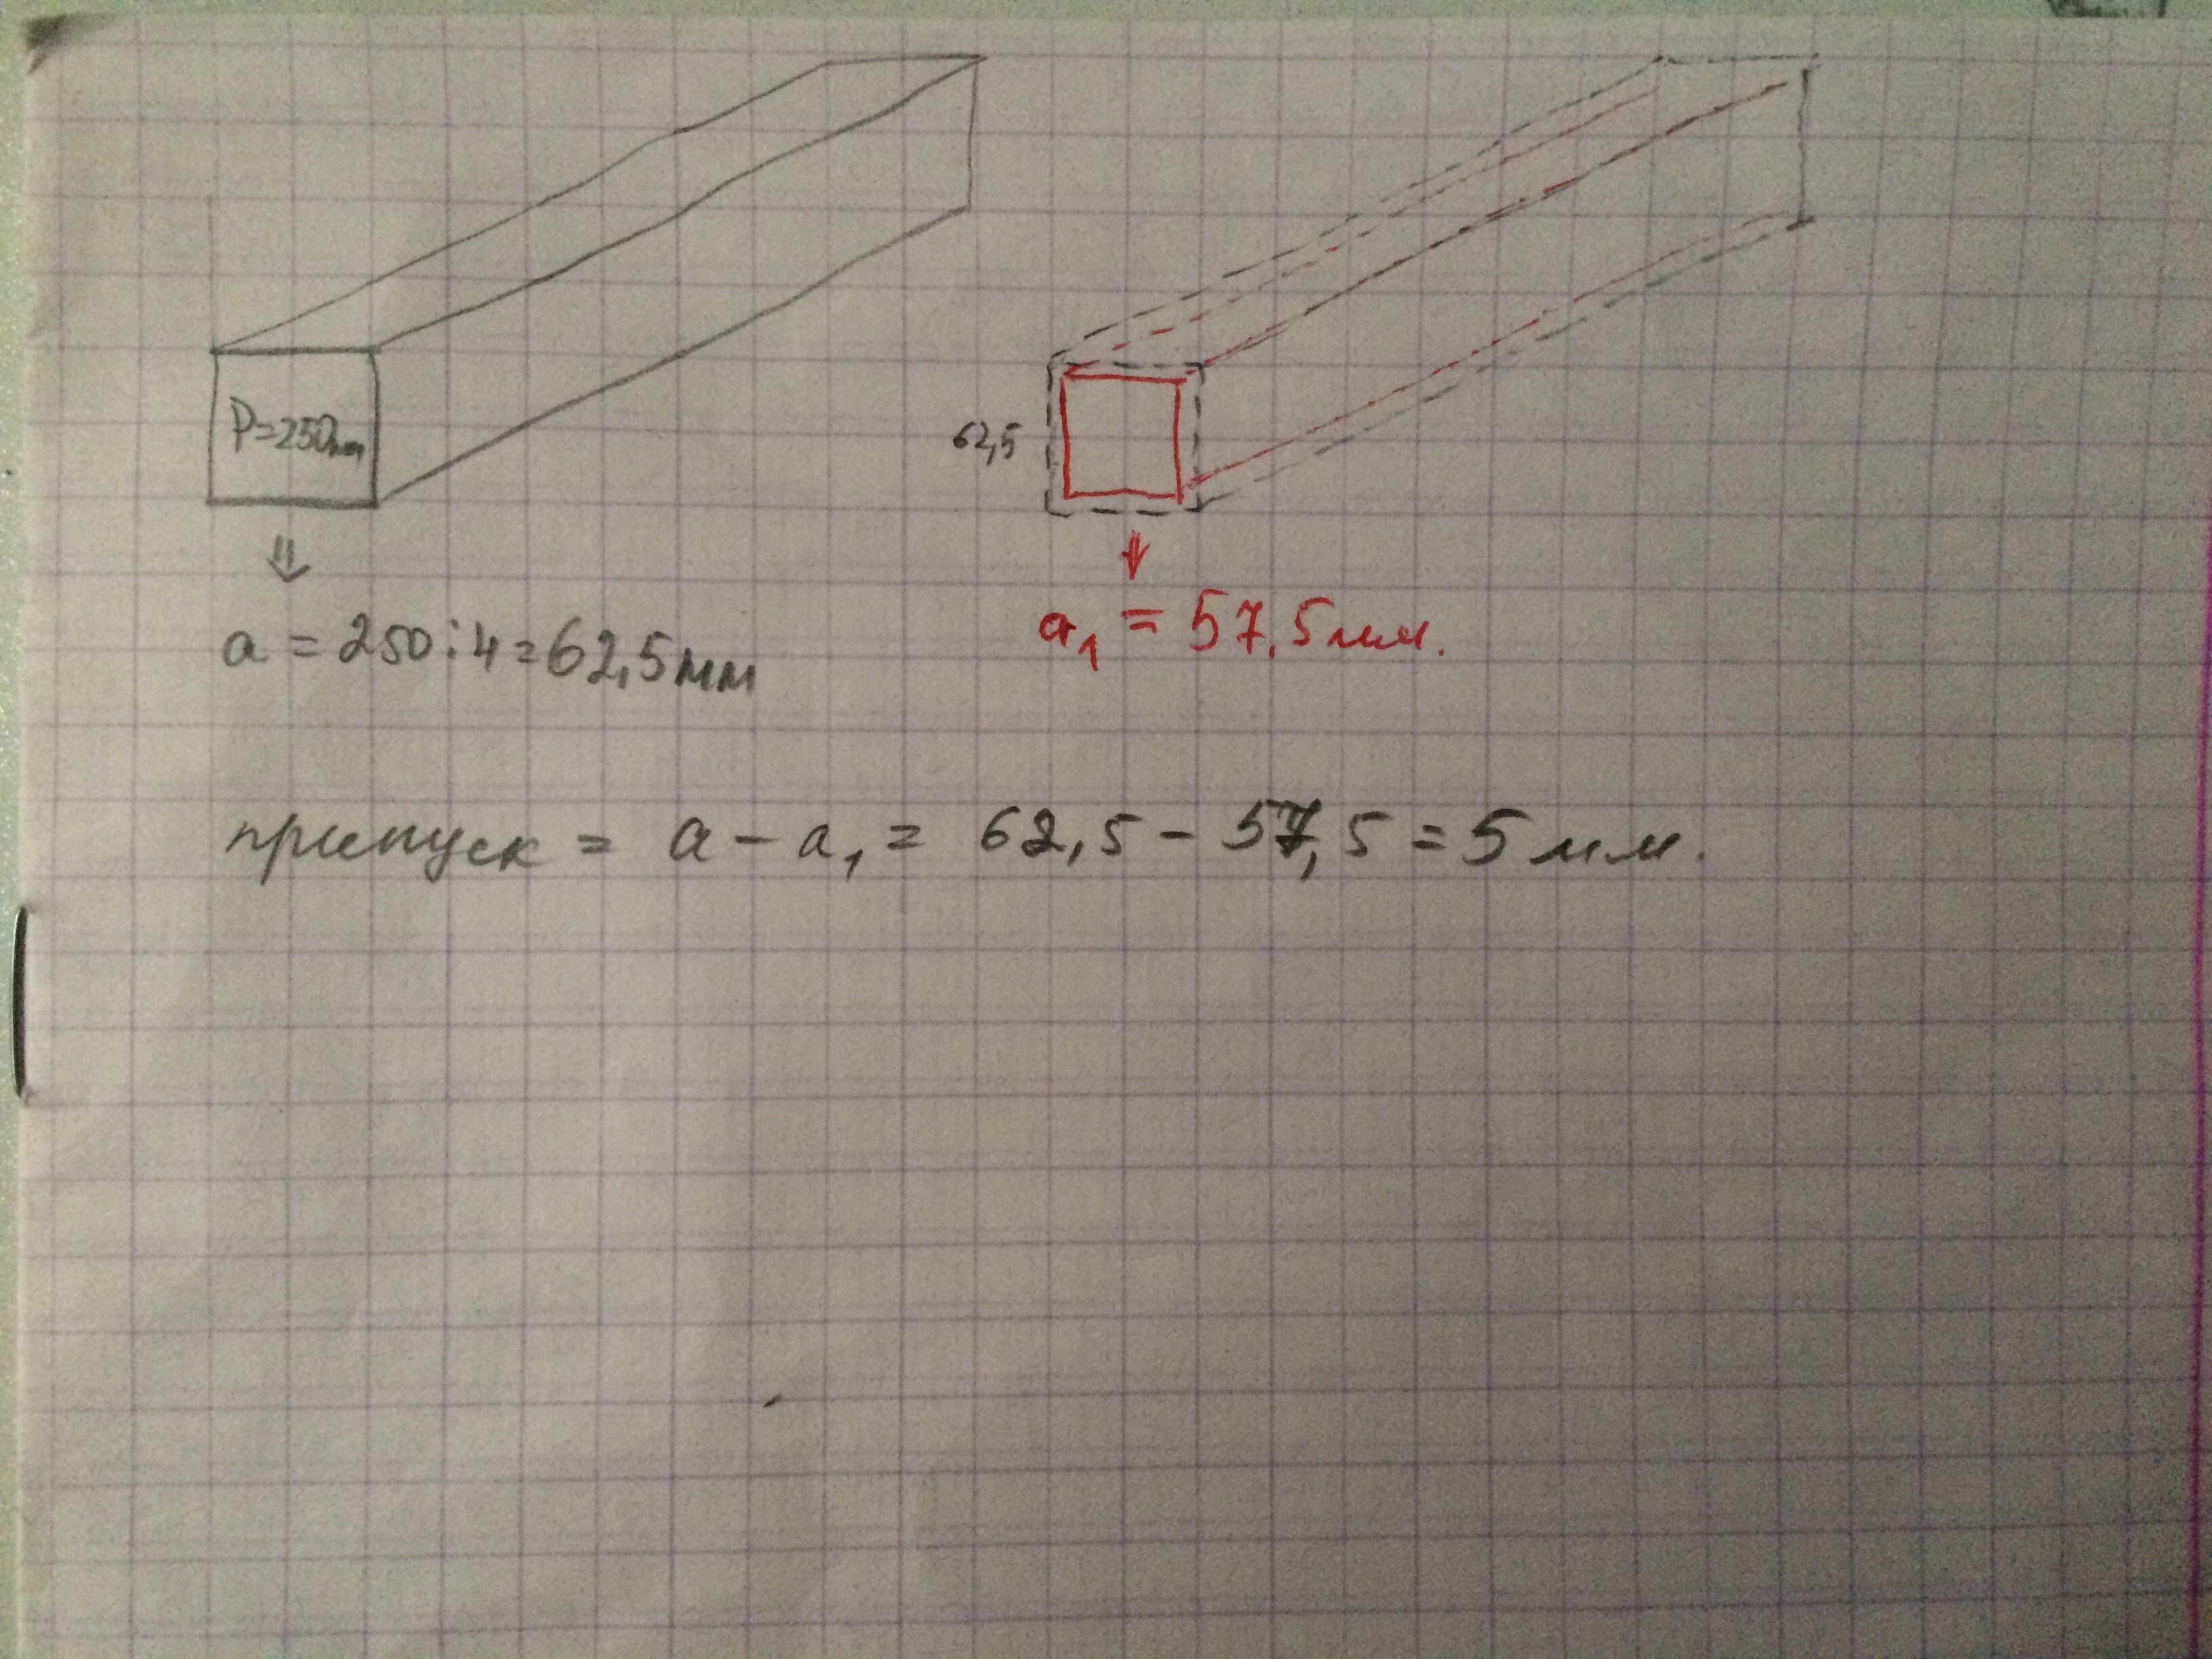 P=250мм
62,5
a = 250:4=62,5мм
a₁ = 57,5мм.
припуск = a - a₁ = 62,5 - 57,5 = 5мм.